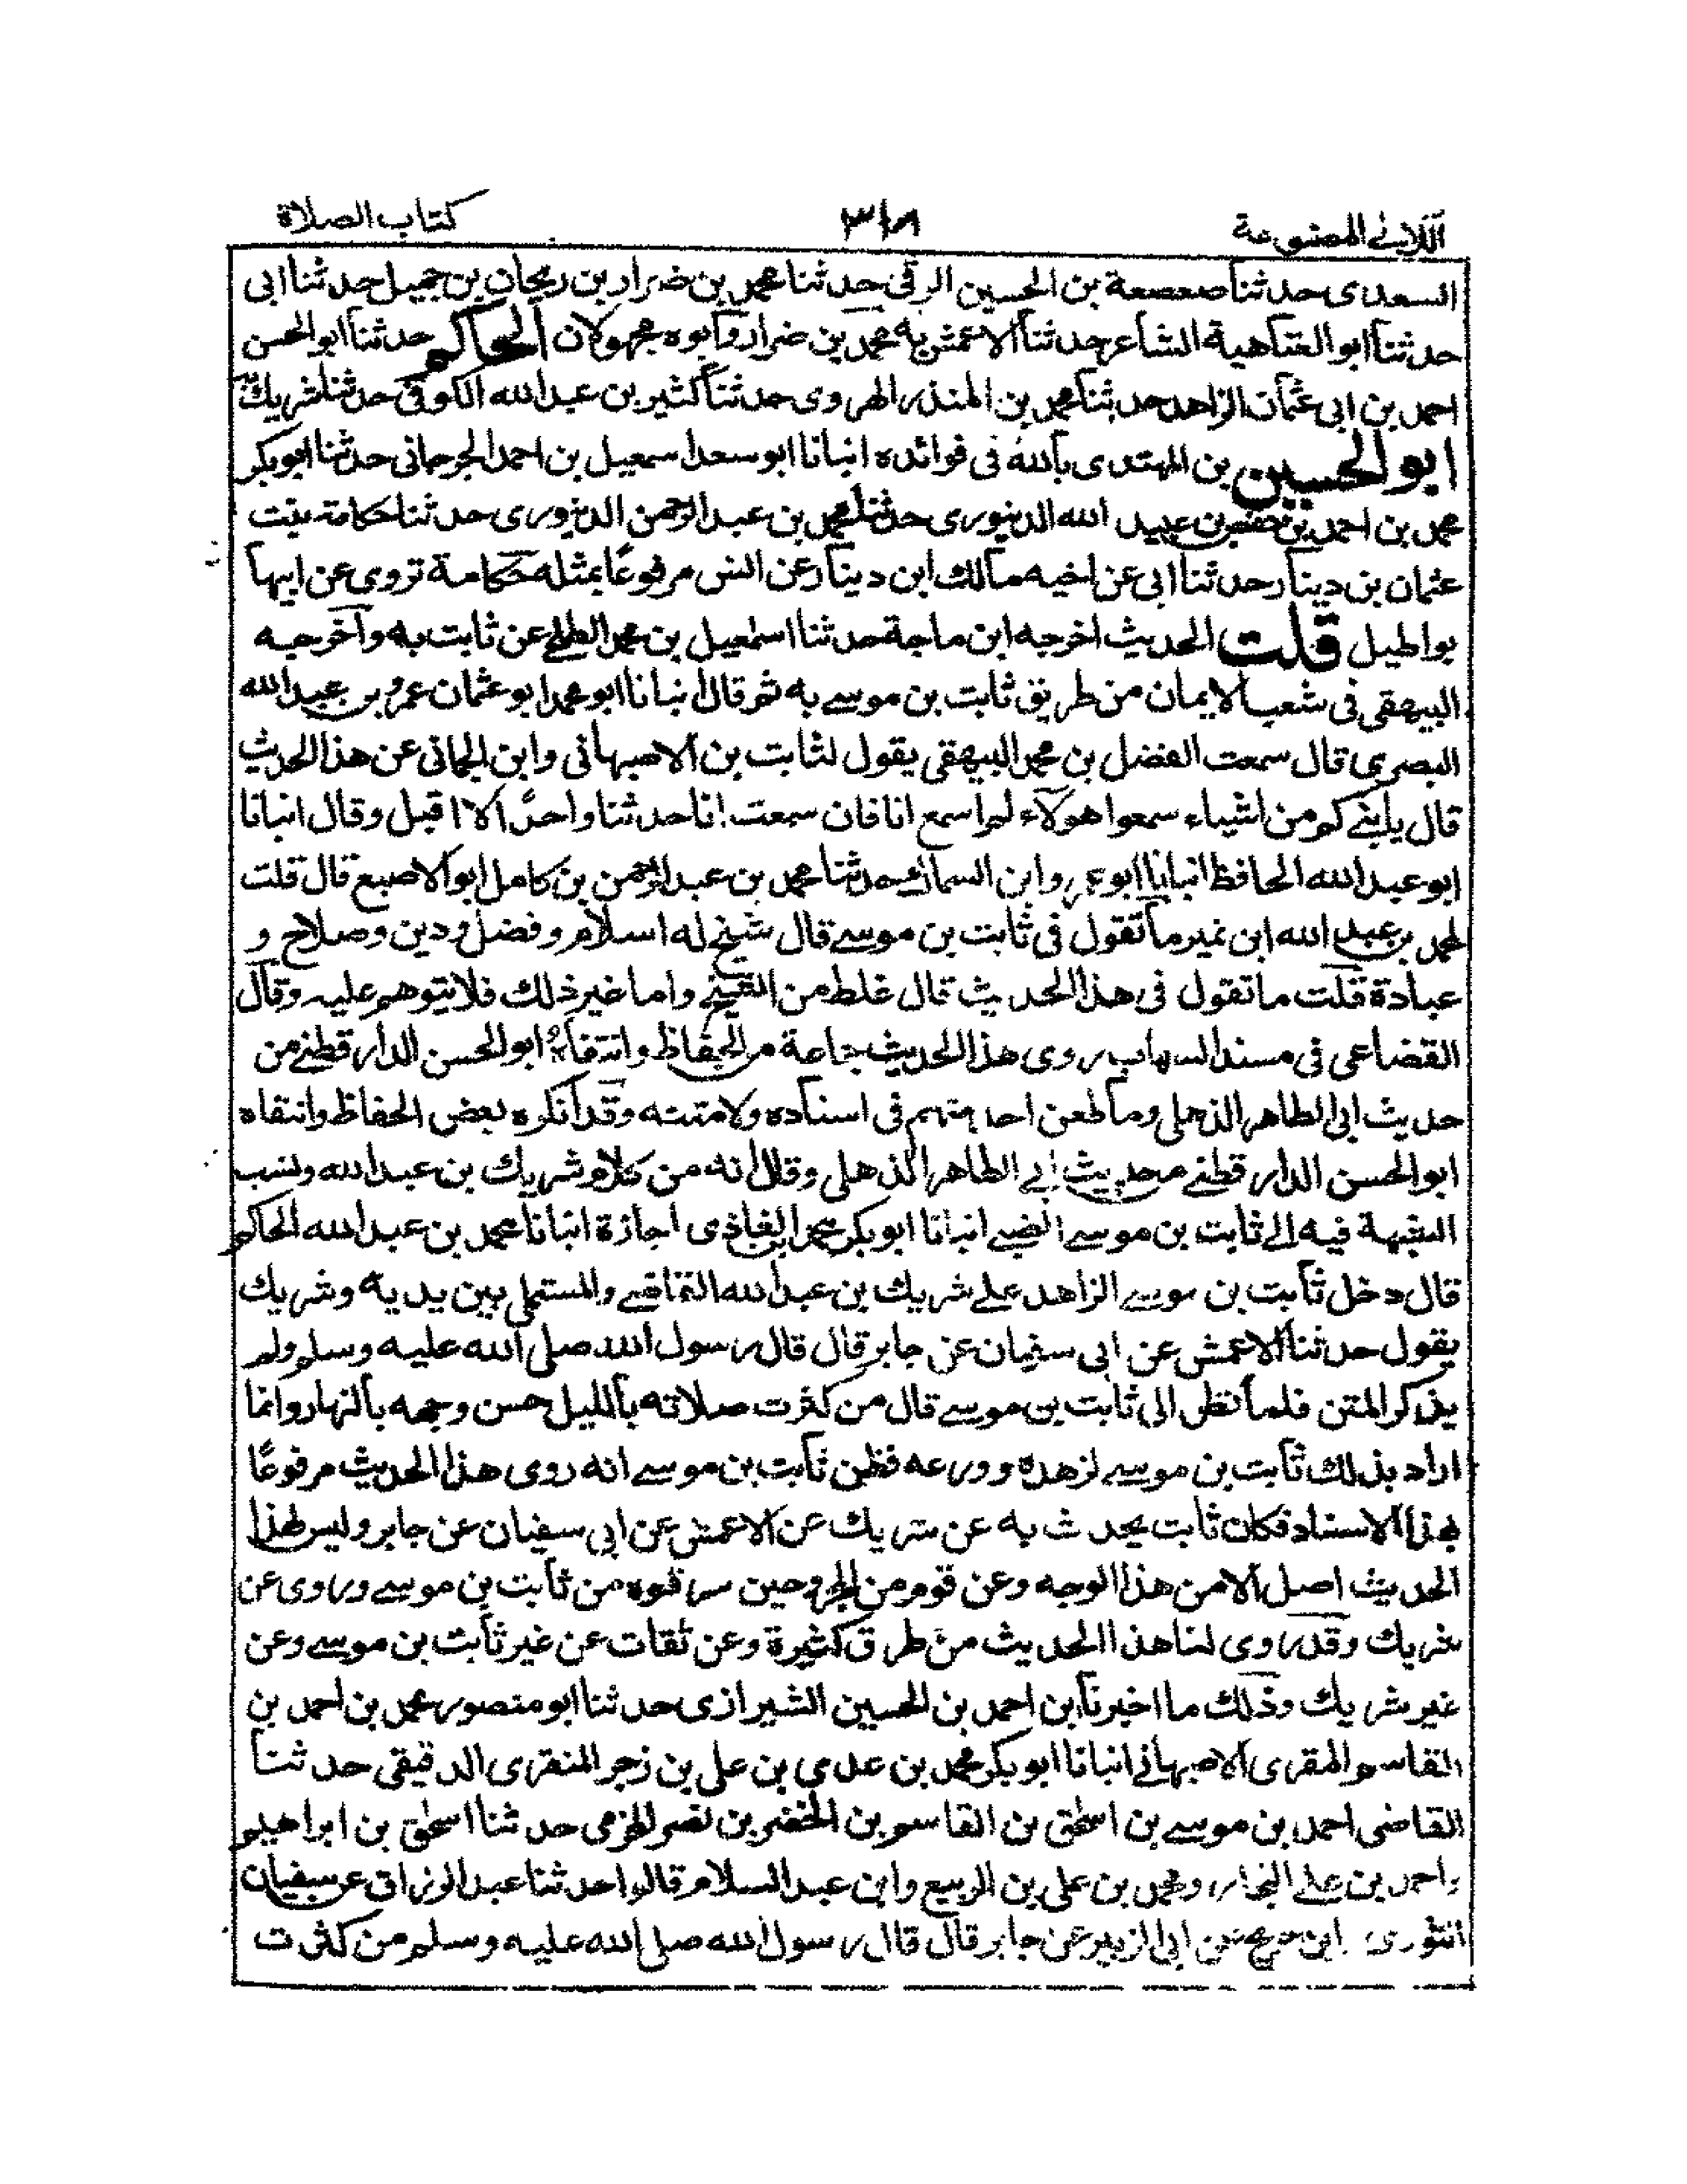 اللآلئ المصنوعة ٣١٨ كتاب الصلاة
السعدى حدثنا صعصعة بن الحسين الرقى حدثنا محمد بن ضرار بن ريحان بن جميل حدثنا ابى
حدثنا ابو العتاهية الشاعر حدثنا الاعمش به محمد بن ضرار وابوه مجهولان الحاكم حدثنا ابو الحسن
احمد بن ابى عثمان الزاهد حدثنا محمد بن المنذر الهروى حدثنا كثير بن عبد الله الكوفى حدثنا شريك
ابو الحسين بن المهتدى بالله فى فوائده انبانا ابو سعد اسمعيل بن احمد الجرجانى حدثنا ابو بكر
محمد بن احمد بن حفص بن عبيد الله الدينورى حدثنا محمد بن عبد الرحمن الدينورى حدثنا حكامة بنت
عثمان بن دينار حدثنا ابى عن اخيه مالك ابن دينار عن انس مرفوعًا بمثله حكامة تروى عن ابيها
بواطيل قلت الحديث اخرجه ابن ماجة حدثنا اسمعيل بن محمد الطلحى عن ثابت به واخرجه
البيهقى فى شعب الايمان من طريق ثابت بن موسے به ثم قال انبانا ابو محمد ابو عثمان عمرو بن عبد الله
البصرى قال سمعت الفضل بن محمد البيهقى يقول لثابت بن الاصبهانى وابن الحمانى عن هذا الحديث
قال يابنے كم من اشياء سمعوا هولاء لم اسمع انا فان سمعت انا حدثنا واحدًا الا اقبل وقال انبانا
ابو عبد الله الحافظ انبانا ابو عمرو ابن السماك حدثنا محمد بن عبد الرحمن بن كامل ابو الاصبع قال قلت
لمحمد بن عبد الله ابن نمير ما تقول فى ثابت بن موسے قال شيخ له اسلام وفضل ودين وصلاح و
عبادة قلت ما تقول فى هذا الحديث قال غلط من الشيخ واما غير ذلك فلا يتوهم عليه وقال
القضاعى فى مسند الشهاب روى هذا الحديث جماعة من الحفاظ وانتقاه ابو الحسن الدارقطنے من
حديث ابى الطاهر الذهلى وما طعن احد منهم فى اسناده ولا متنه وقد انكره بعض الحفاظ وانتقاه
ابو الحسن الدارقطنے من حديث ابے الطاهر الذهلى وقال انه من كلام شريك بن عبد الله ونسب
الشبهة فيه الے ثابت بن موسے الضبے انبانا ابو بكر محمد الغاذى اجازة انبانا محمد بن عبد الله الحاكم
قال دخل ثابت بن موسے الزاهد علے شريك بن عبد الله القاضے والمستملى بين يديه وشريك
يقول حدثنا الاعمش عن ابى سفيان عن جابر قال قال رسول الله صلى الله عليه وسلم ولم
يذكر المتن فلما نظر الى ثابت بن موسے قال من كثرت صلاته بالليل حسن وجهه بالنهار وانما
اراد بذلك ثابت بن موسے لزهده وورعه فظن ثابت بن موسے انه روى هذا الحديث مرفوعًا
بهذا الاسناد فكان ثابت يحدث به عن شريك عن الاعمش عن ابى سفيان عن جابر وليس لهذا
الحديث اصل الا من هذا الوجه وعن قوم من المجروحين سرقوه من ثابت بن موسے وراوى عن
شريك وقد روى لنا هذا الحديث من طرق كثيرة وعن ثقات عن غير ثابت بن موسے وعن
غير شريك وذلك ما اخبرنا ابن احمد بن الحسين الشيرازى حدثنا ابو منصور محمد بن احمد بن
القاسم المقرى الاصبهانے انبانا ابو بكر محمد بن عدى بن على بن زجر المنقرى الدقيقى حدثنا
القاضى احمد بن موسے بن اسحق بن القاسم بن الخضر بن نصر المخزمى حدثنا اسحق بن ابراهيم
واحمد بن علے النجار ومحمد بن على بن الربيع وابن عبد السلام قالوا حدثنا عبد الرزاق عن سفيان
الثورى ابن جريج عن ابى الزبير عن جابر قال قال رسول الله صلى الله عليه وسلم من كثرت